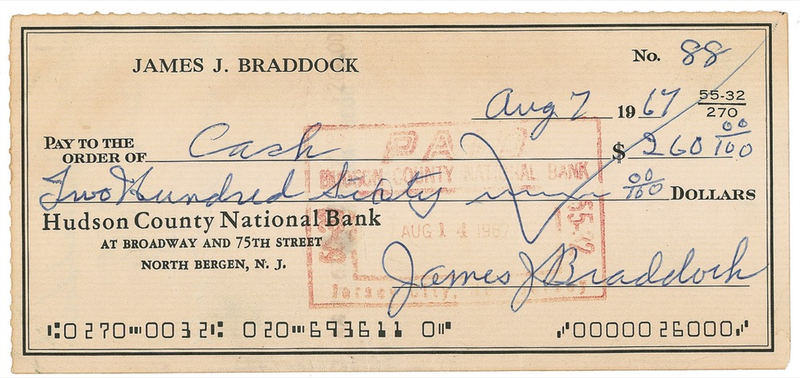 JAMES J. BRADDOCK
No. 88
Aug 7 1967
55-32
270
PAY TO THE
ORDER OF Cash $ 260 00/100
Two Hundred Sixty 00/100 DOLLARS
Hudson County National Bank
AT BROADWAY AND 75TH STREET
NORTH BERGEN, N. J.
James J Braddock
PAID
HUDSON COUNTY NATIONAL BANK
AUG 14 1967
55-32
Jersey City,
⑆0270⑉0032⑆ 020⑉693611 0⑈ ⑈0000026000⑈